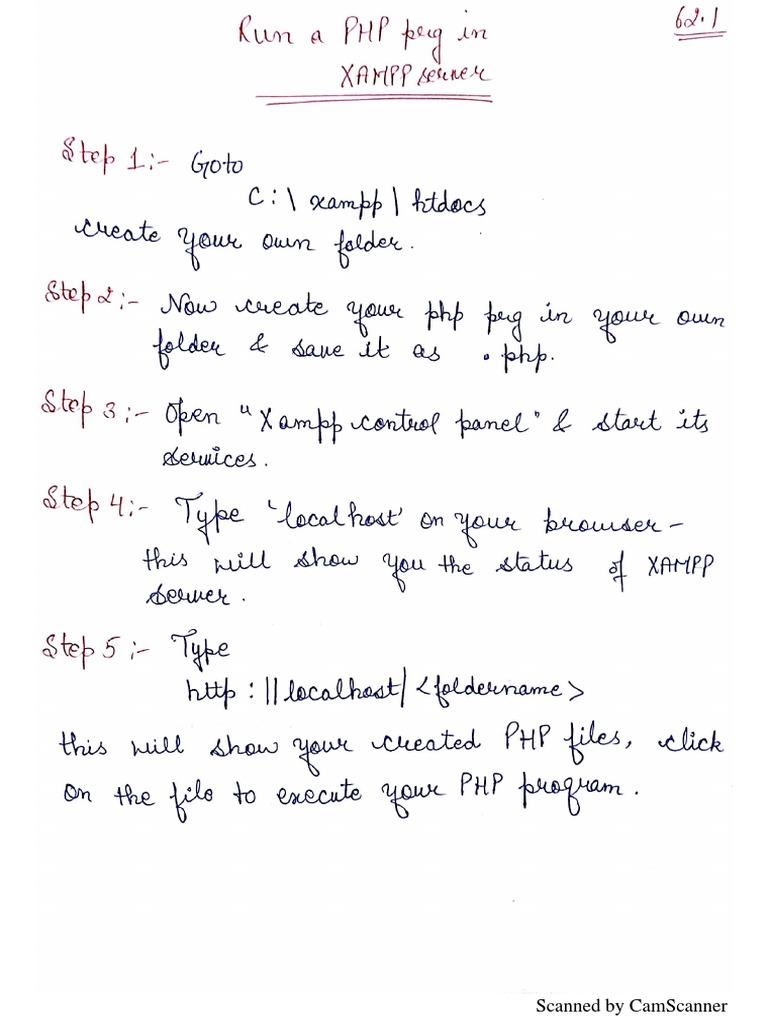 Run a PHP prg in
62.1
XAMPP server
Step 1:- Goto
C:\xampp\htdocs
create your own folder.
Step 2:- Now create your php prg in your own
folder & save it as .php.
Step 3:- Open "Xampp control panel" & start its
services.
Step 4:- Type 'localhost' on your browser -
this will show you the status of XAMPP
server.
Step 5:- Type
http://localhost/<foldername>
this will show your created PHP files, click
on the file to execute your PHP program.
Scanned by CamScanner